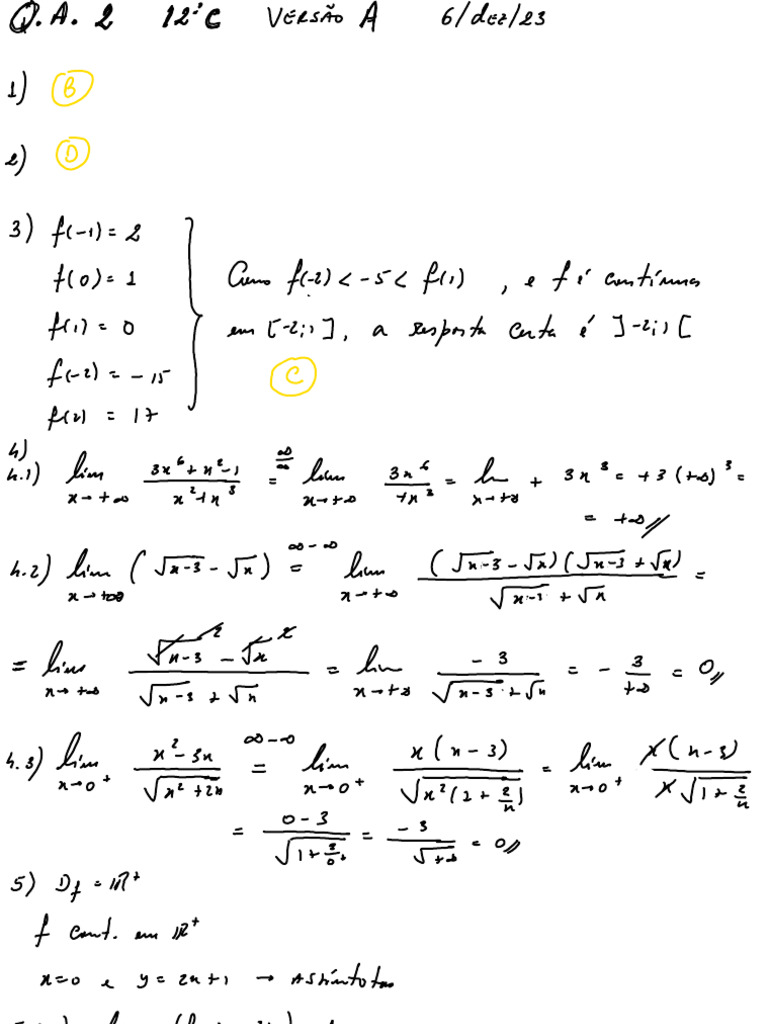 Q.A. 2 12ºC VERSÃO A 6/DEZ/23
1) B
2) D
3) f(-1) = 2
f(0) = 1
f(1) = 0
f(-2) = -15
f(2) = 17
Como f(-2) < -5 < f(1), e f é contínua
em [-2;1], a resposta certa é ]-2;1[
C
4)
4.1) lim x→+∞ (3x^6+x^2-1)/(x^2+x^3) =^(∞/∞) lim x→+∞ 3x^6/+x^3 = lim x→+∞ + 3x^3 = +3(+∞)^3 =
= +∞//
4.2) lim x→+∞ (√(x-3) - √x) =^(∞-∞) lim x→+∞ ((√(x-3) - √x)(√(x-3) + √x))/(√(x-3) + √x) =
= lim x→+∞ (√(x-3)^2 - √x^2)/(√(x-3) + √x) = lim x→+∞ -3/(√(x-3) + √x) = - 3/+∞ = 0//
4.3) lim x→0+ (x^2-3x)/√(x^2+2x) =^(∞-∞) lim x→0+ x(x-3)/√(x^2(1+2/x)) = lim x→0+ x(x-3)/(x√(1+2/x))
= (0-3)/√(1+2/0+) = -3/√+∞ = 0//
5) Df = IR+
f cont. em IR+
x=0 e y=2x+1 → Assíntotas